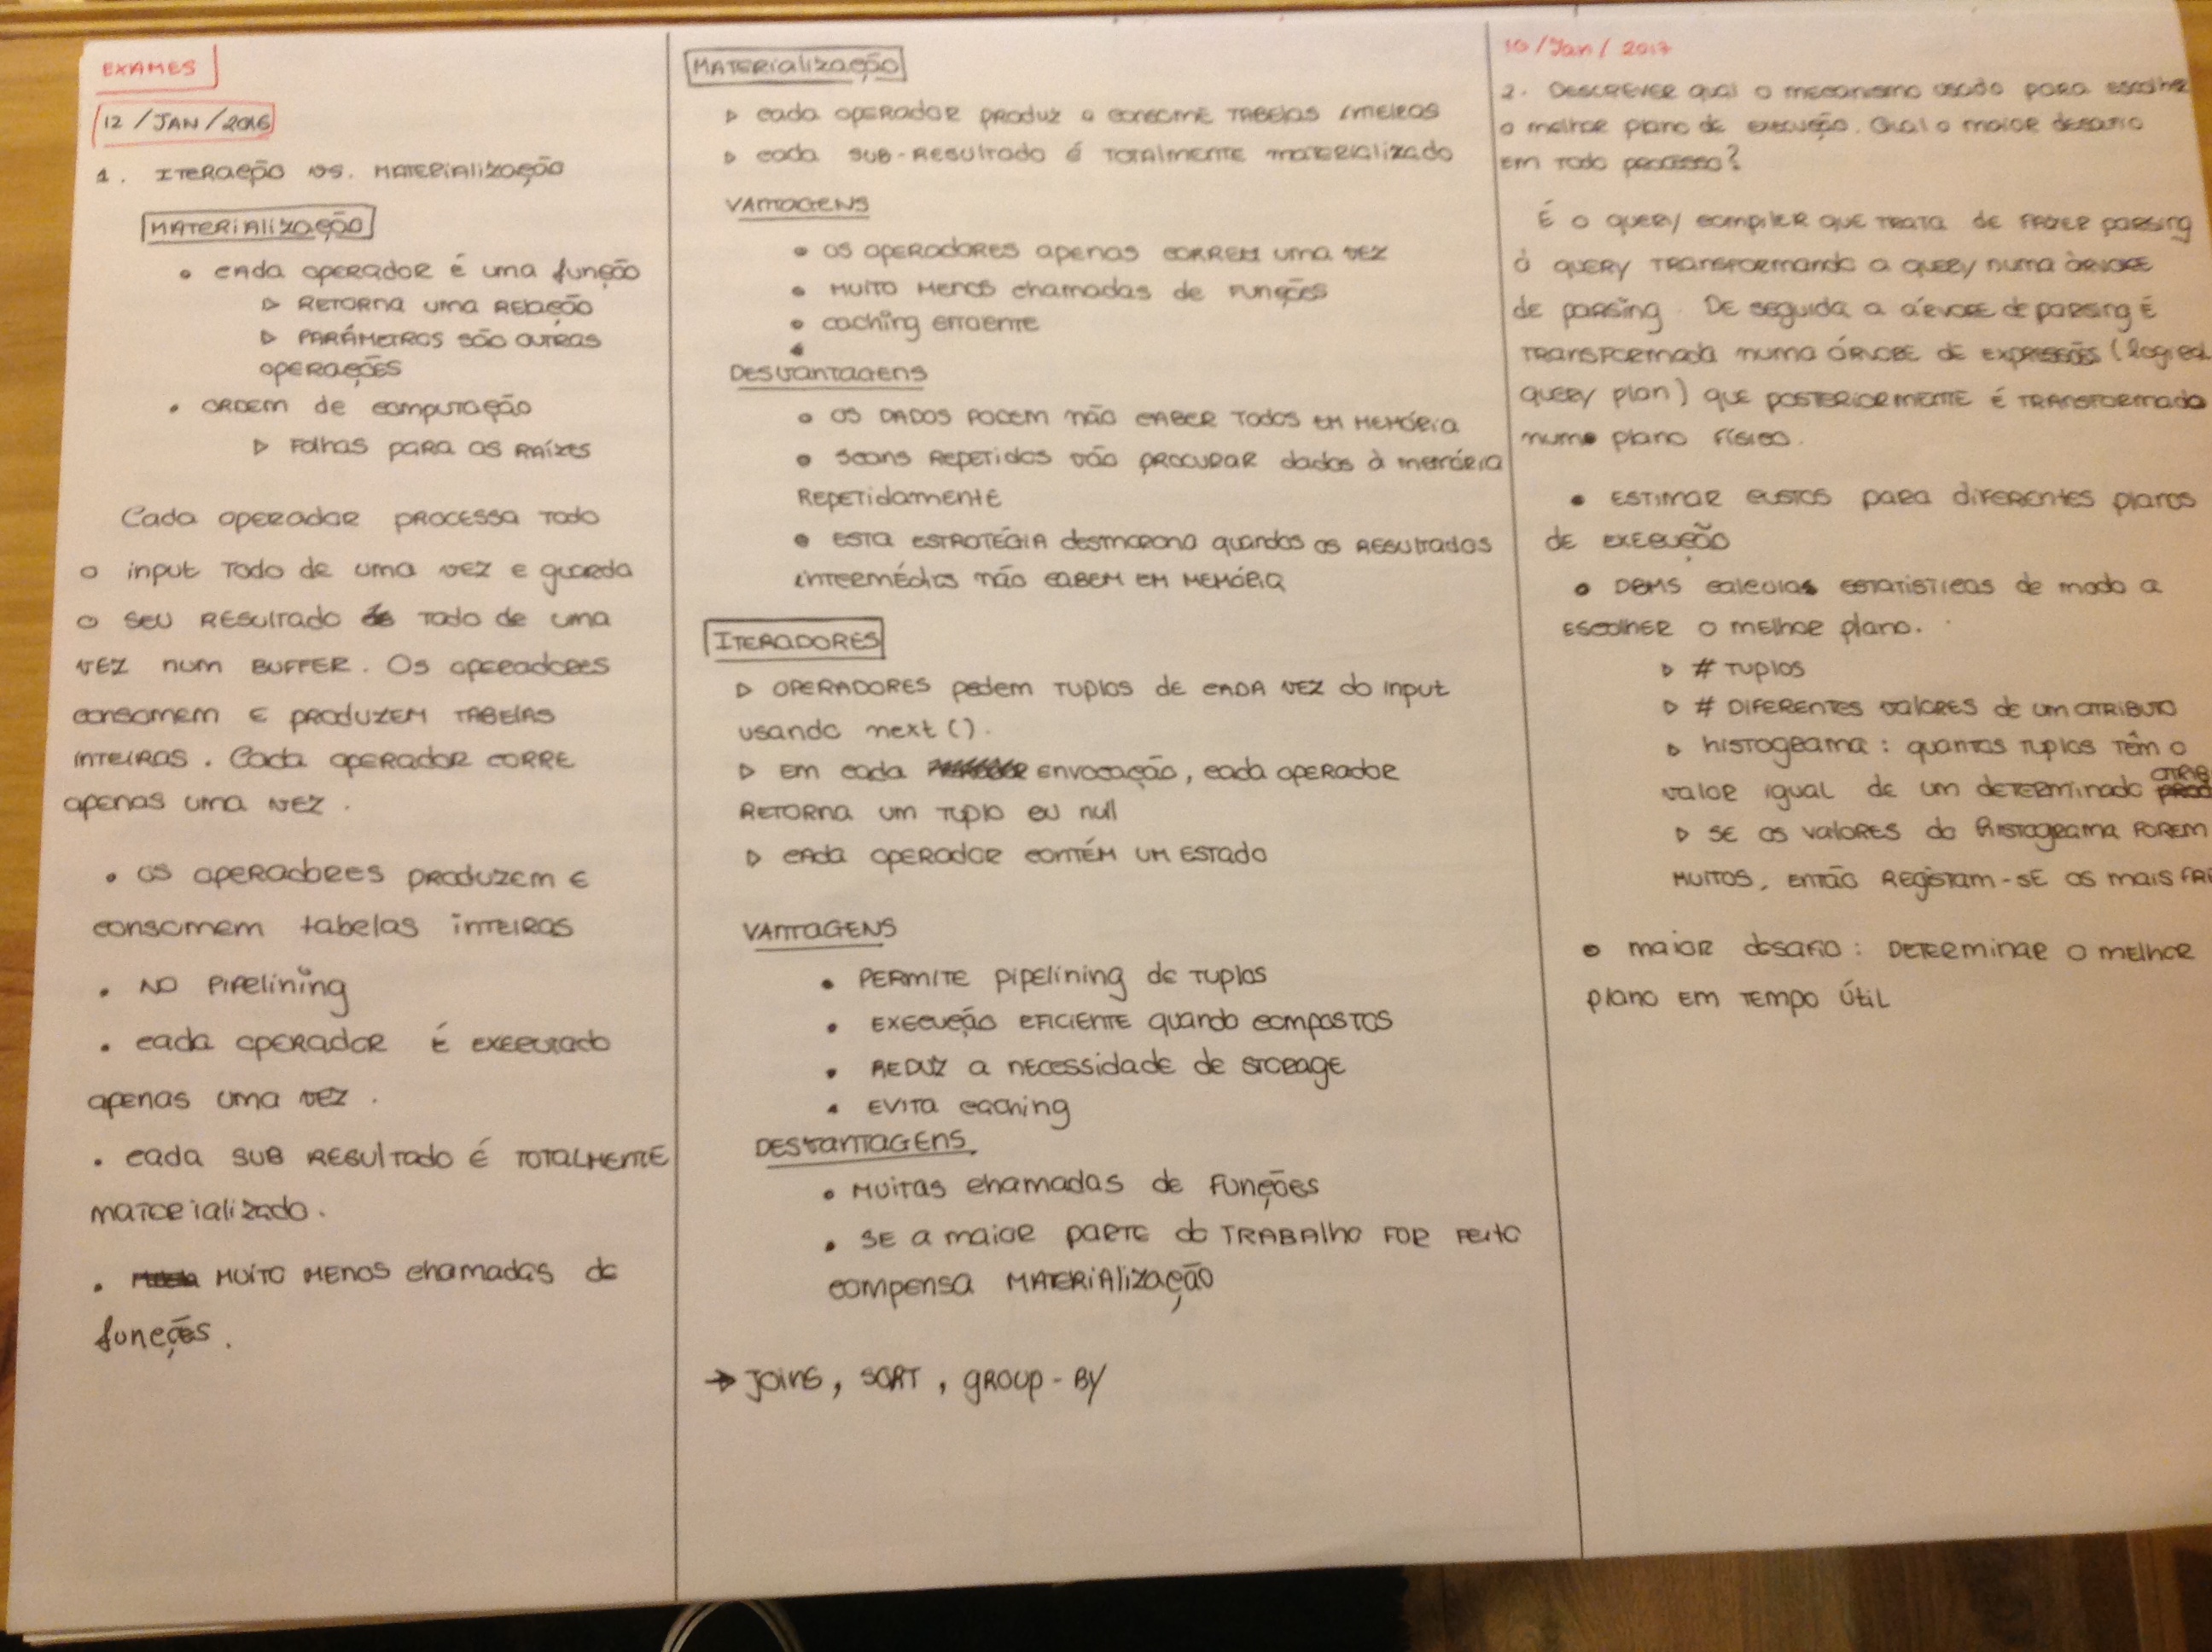 EXAMES
12/JAN/2016
1. ITERAÇÃO VS. MATERIALIZAÇÃO
MATERIALIZAÇÃO
• CADA OPERADOR É UMA função
▷ RETORNA UMA RELAÇÃO
▷ PARÂMETROS SÃO OUTRAS
OPERAÇÕES
• ORDEM de computação
▷ Folhas para as RAÍZES
Cada operador processa todo
o input todo de uma vez e guarda
o seu resultado todo de uma
vez num BUFFER. Os operadores
consomem e produzem TABELAS
INTEIRAS. Cada operador corre
apenas uma vez.
• os operadores produzem e
consomem tabelas inteiras
• NO Pipelining
• cada operador é executado
apenas uma vez.
• cada SUB RESULTADO é TOTALMENTE
materializado.
• MUITO MENOS chamadas de
funções.
MATERIALIZAÇÃO
▷ cada operador produz e consome TABELAS INTEIRAS
▷ cada SUB-RESULTADO é TOTALMENTE materializado
VANTAGENS
• os operadores apenas CORREM UMA VEZ
• MUITO MENOS chamadas de funções
• caching
•
DESVANTAGENS
• OS DADOS PODEM NÃO CABER TODOS EM MEMÓRIA
• Scans Repetidos vão procurar dados à memória
Repetidamente
• ESTA ESTRATÉGIA desmorona quandos os RESULTADOS
intermédios não CABEM EM MEMÓRIA
ITERADORES
▷ OPERADORES pedem TUPLOS de CADA VEZ do input
usando next().
▷ Em cada envocação, cada operador
RETORNA um TUPLO ou null
▷ Cada operador contém UM ESTADO
VANTAGENS
• PERMITE pipelining de TUPLOS
• EXECUÇÃO EFICIENTE quando compostos
• REDUZ a necessidade de storage
• EVITA caching
DESVANTAGENS.
• MUITAS chamadas de FUNÇÕES
• SE a maior PARTE do TRABALHO FOR FEITO
compensa MATERIALIZAÇÃO
→ Joins, SORT, GROUP-BY
10/Jan/2017
2. DESCREVER qual o mecanismo usado para escolher
o melhor plano de execução. Qual o maior desafio
em todo processo?
É o query compiler que trata de fazer parsing
à query transformando a query numa árvore
de parsing. De seguida a árvore de parsing é
transformada numa árvore de expressões (logical
query plan) que posteriormente é transformada
num plano físico.
• ESTIMAR custos para diferentes planos
de execução
• DBMS calcula estatísticas de modo a
escolher o melhor plano.
▷ # TUPLOS
▷ # DIFERENTES valores de um atributo
▷ histograma: quantos tuplos têm o
valor igual de um determinado
▷ SE os valores do histograma forem
muitos, então registam-se os mais
• maior desafio: DETERMINAR o melhor
plano em tempo útil